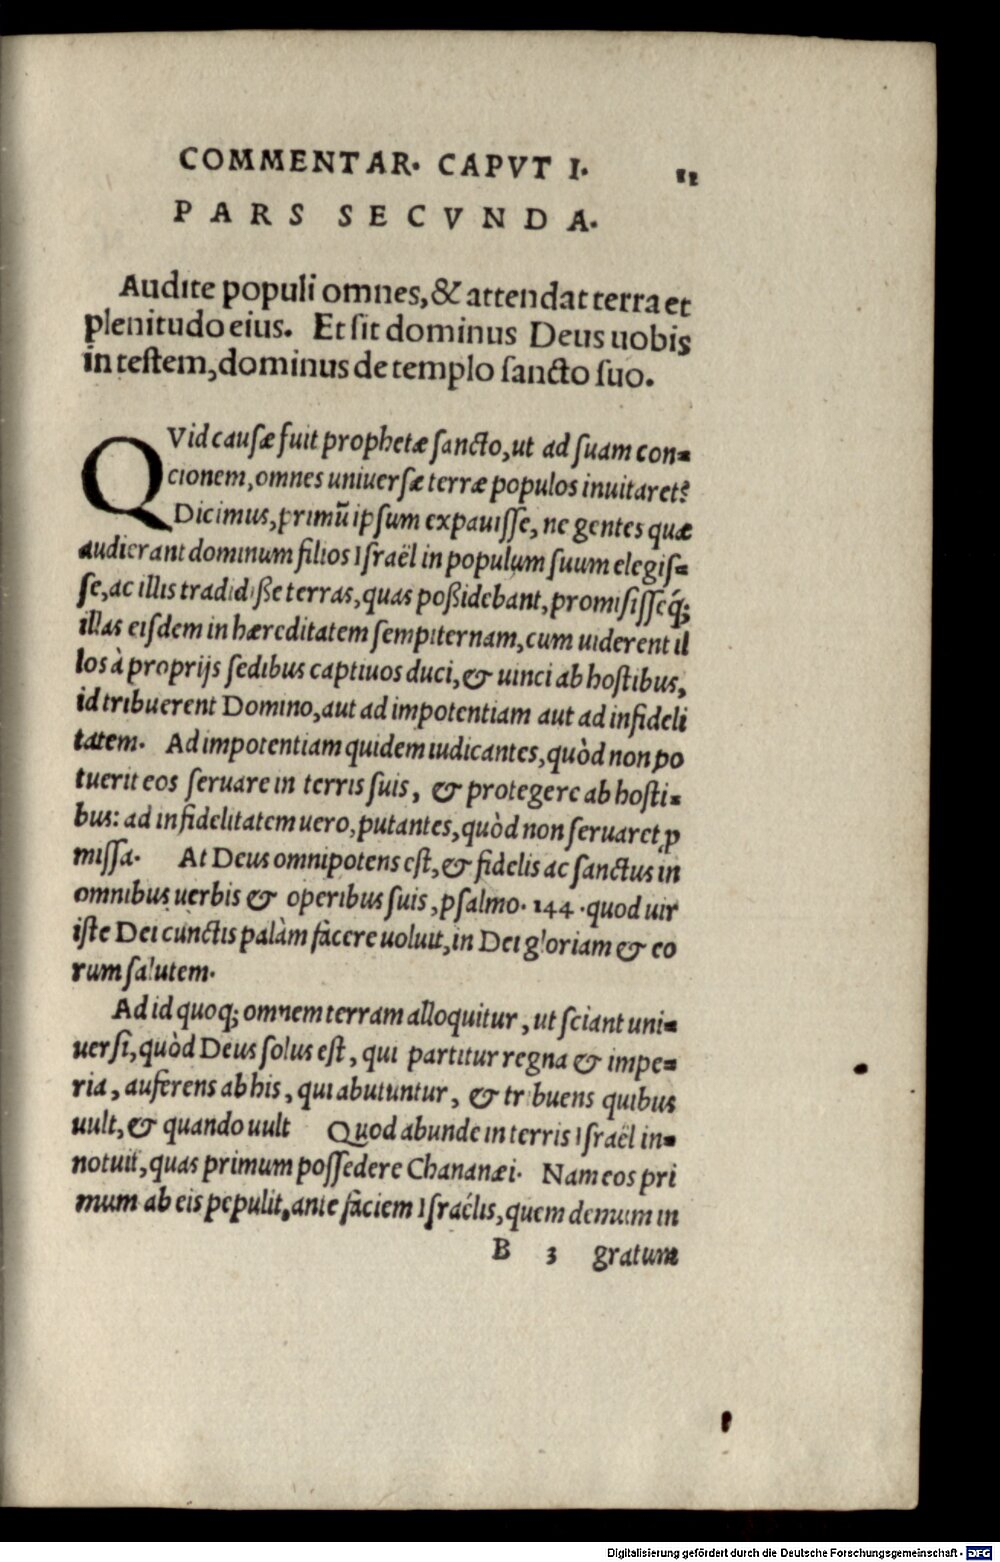 COMMENTAR. CAPVT I. 11
PARS SECVNDA.
Audite populi omnes, & attendat terra et
plenitudo eius. Et sit dominus Deus uobis
in testem, dominus de templo sancto suo.
QVid causæ fuit prophetæ sancto, ut ad suam con-
cionem, omnes uniuersæ terræ populos inuitaret?
Dicimus, primũ ipsum expauisse, ne gentes quæ
audierant dominum filios Israël in populum suum elegis-
se, ac illis tradidiße terras, quas poßidebant, promisisseq́;
illas eisdem in hæreditatem sempiternam, cum uiderent il
los à proprijs sedibus captiuos duci, & uinci ab hostibus,
id tribuerent Domino, aut ad impotentiam aut ad infideli
tatem. Ad impotentiam quidem iudicantes, quòd non po
tuerit eos seruare in terris suis, & protegere ab hosti-
bus: ad infidelitatem uero, putantes, quòd non seruaret ꝓ
missa. At Deus omnipotens est, & fidelis ac sanctus in
omnibus uerbis & operibus suis, psalmo. 144. quod uir
iste Dei cunctis palàm facere uoluit, in Dei gloriam & eo
rum salutem.
Ad id quoq; omnem terram alloquitur, ut sciant uni-
uersi, quòd Deus solus est, qui partitur regna & impe-
ria, auferens ab his, qui abutuntur, & tribuens quibus
uult, & quando uult Quod abunde in terris Israël in-
notuit, quas primum possedere Chananæi. Nam eos pri
mum ab eis pepulit, ante faciem Israélis, quem demum in
B 3 gratum
Digitalisierung gefördert durch die Deutsche Forschungsgemeinschaft - DFG